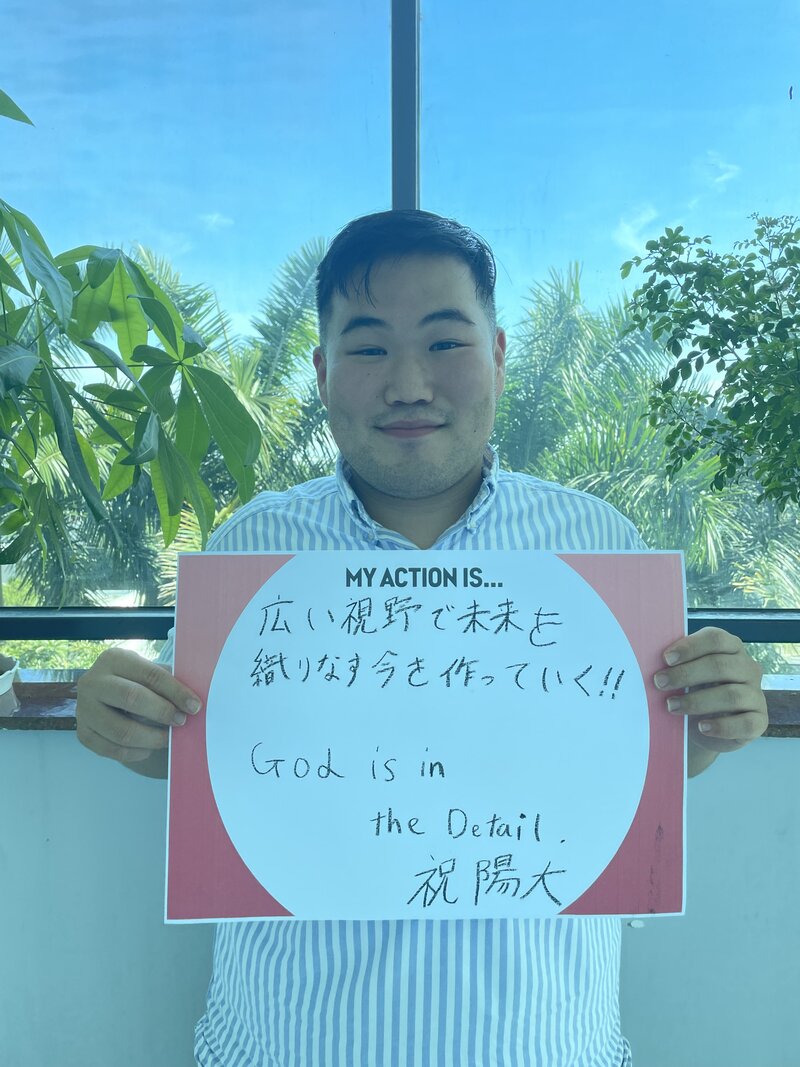 MY ACTION IS...
広い視野で未来を
織りなす今を作っていく!!
God is in
the Detail.
祝陽大